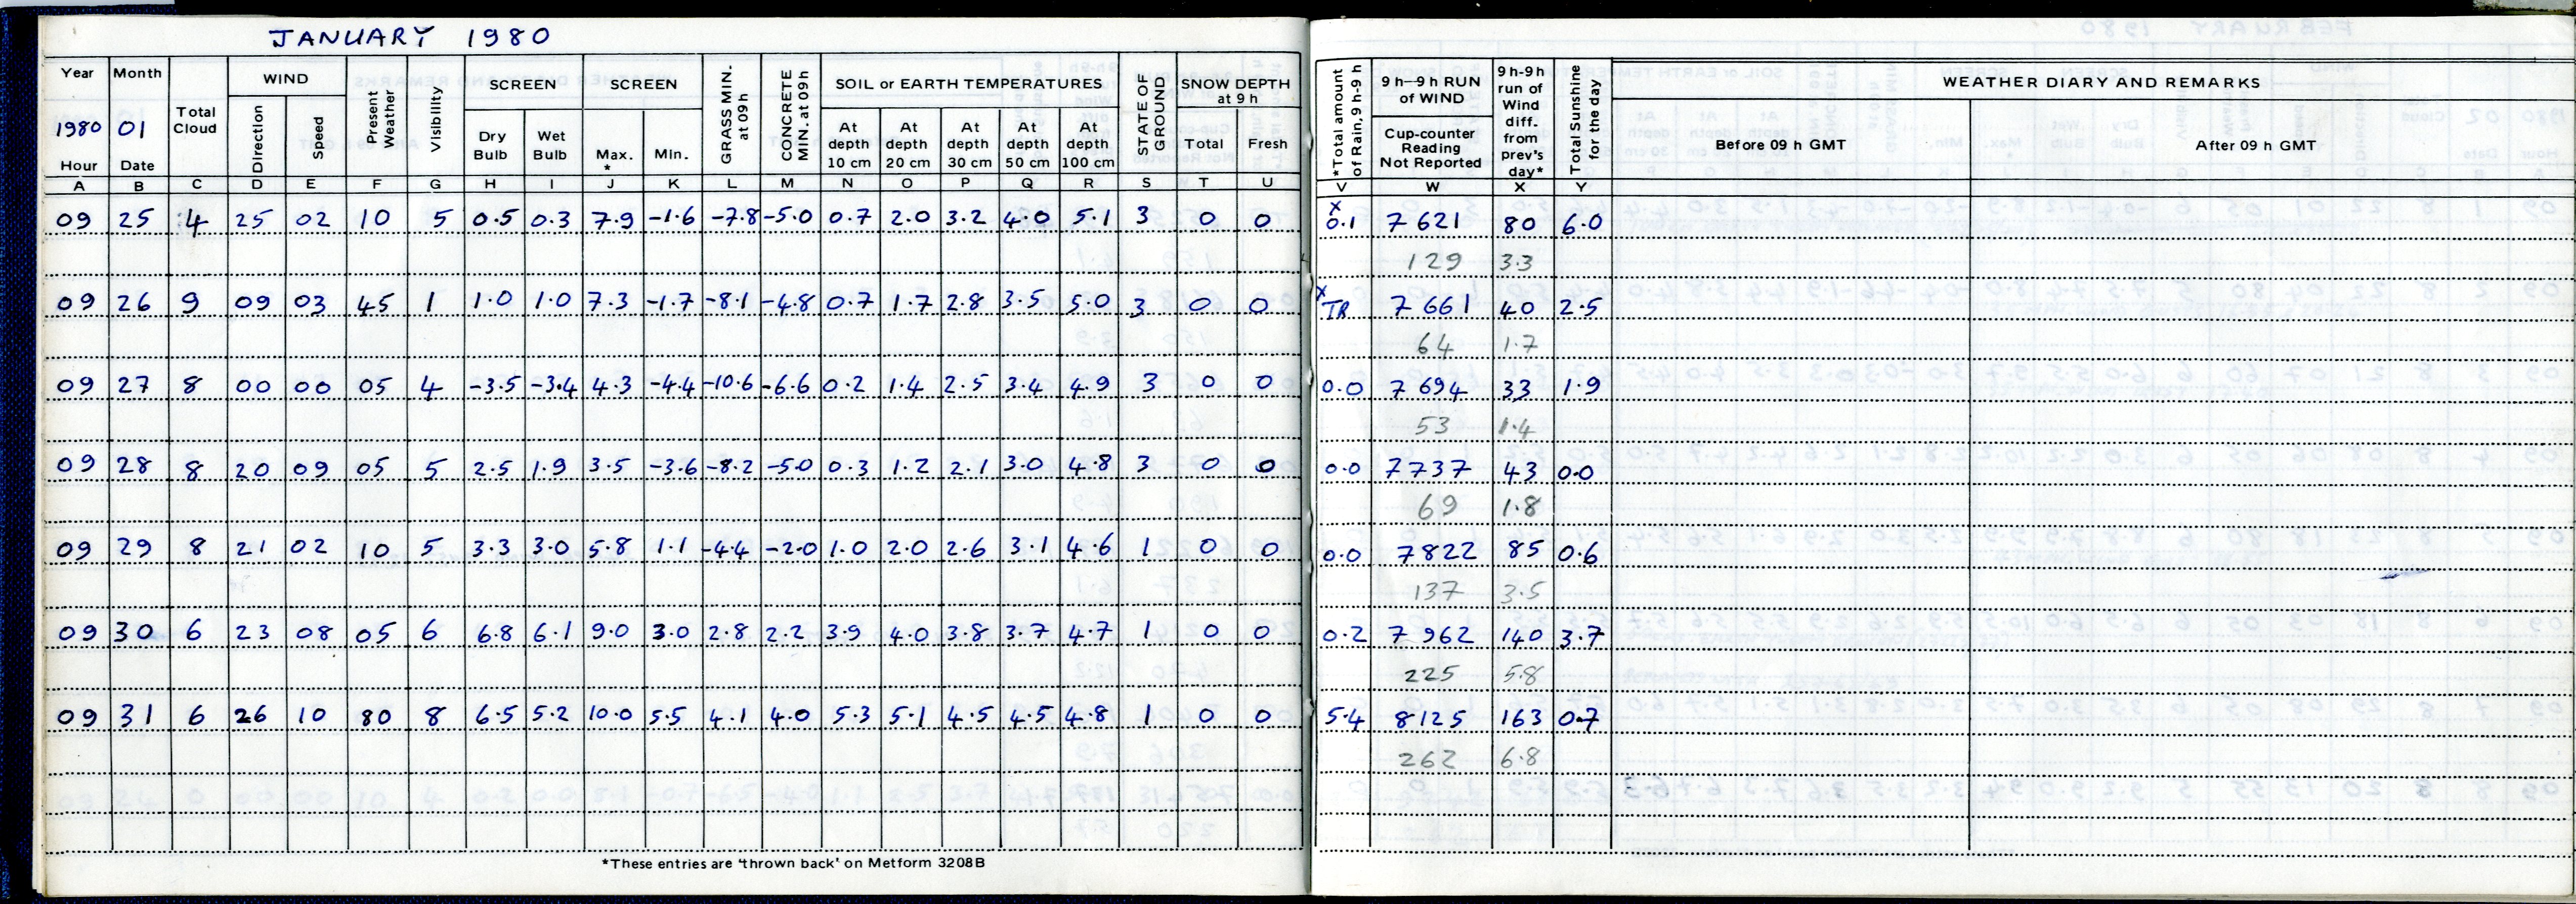 JANUARY 1980
Year Month Total Cloud WIND Present Weather Visibility SCREEN SCREEN GRASS MIN. at 09h CONCRETE MIN. at 09h SOIL or EARTH TEMPERATURES STATE OF GROUND SNOW DEPTH at 9 h *Total amount of Rain, 9 h-9 h 9 h–9 h RUN of WIND 9 h-9 h run of Wind diff. from prev's day* Total Sunshine for the day WEATHER DIARY AND REMARKS
1980 01 Direction Speed Dry Bulb Wet Bulb Max. * Min. At depth 10 cm At depth 20 cm At depth 30 cm At depth 50 cm At depth 100 cm Total Fresh Cup-counter Reading Not Reported Before 09 h GMT After 09 h GMT
Hour Date
A B C D E F G H I J K L M N O P Q R S T U V W X Y
09 25 4 25 02 10 5 0.5 0.3 7.9 -1.6 -7.8 -5.0 0.7 2.0 3.2 4.0 5.1 3 0 0 x 0.1 7621 80 6.0
129 3.3
09 26 9 09 03 45 1 1.0 1.0 7.3 -1.7 -8.1 -4.8 0.7 1.7 2.8 3.5 5.0 3 0 0 x TR 7661 40 2.5
64 1.7
09 27 8 00 00 05 4 -3.5 -3.4 4.3 -4.4 -10.6 -6.6 0.2 1.4 2.5 3.4 4.9 3 0 0 0.0 7694 33 1.9
53 1.4
09 28 8 20 09 05 5 2.5 1.9 3.5 -3.6 -8.2 -5.0 0.3 1.2 2.1 3.0 4.8 3 0 0 0.0 7737 43 0.0
69 1.8
09 29 8 21 02 10 5 3.3 3.0 5.8 1.1 -4.4 -2.0 1.0 2.0 2.6 3.1 4.6 1 0 0 0.0 7822 85 0.6
137 3.5
09 30 6 23 08 05 6 6.8 6.1 9.0 3.0 2.8 2.2 3.9 4.0 3.8 3.7 4.7 1 0 0 0.2 7962 140 3.7
225 5.8
09 31 6 26 10 80 8 6.5 5.2 10.0 5.5 4.1 4.0 5.3 5.1 4.5 4.5 4.8 1 0 0 5.4 8125 163 0.7
262 6.8
*These entries are 'thrown back' on Metform 3208B